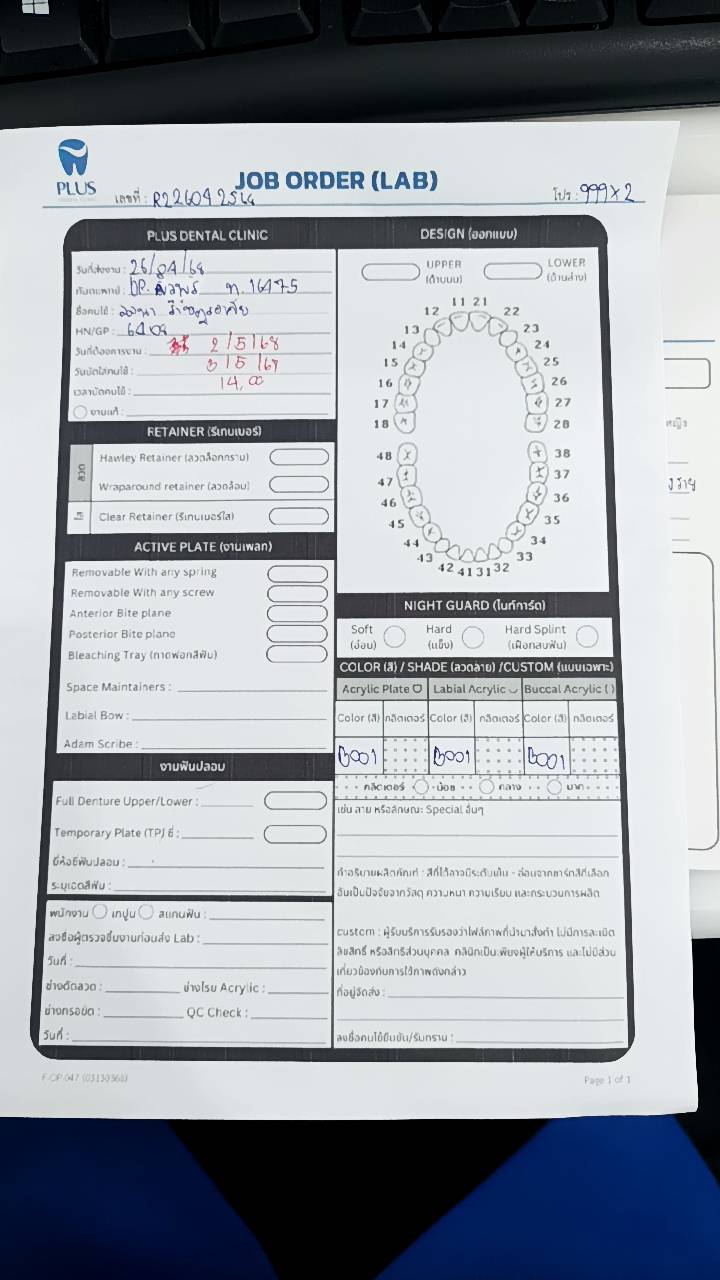 PLUS
JOB ORDER (LAB)
เลขที่ : R22604
โปร : 999 x 2
PLUS DENTAL CLINIC
วันที่ส่งงาน : 26/04/68
ทันตแพทย์ : ท. 16475
ชื่อคนไข้ :
HN/GP : 6404
วันที่ต้องการงาน : 2/5/68
วันนัดใส่คนไข้ : 3/5/68
เวลานัดคนไข้ : 14,00
งานแก้ :
RETAINER (รีเทนเนอร์)
ลวด
Hawley Retainer (ลวดล็อกกราม)
Wraparound retainer (ลวดล้อม)
ใส
Clear Retainer (รีเทนเนอร์ใส)
ACTIVE PLATE (งานเพลท)
Removable With any spring
Removable With any screw
Anterior Bite plane
Posterior Bite plane
Bleaching Tray (ถาดฟอกสีฟัน)
Space Maintainers :
Labial Bow :
Adam Scribe :
งานฟันปลอม
Full Denture Upper/Lower :
Temporary Plate (TP) ซี่ :
ยี่ห้อซี่ฟันปลอม :
ระบุเฉดสีฟัน :
พนักงาน เทปูน สแกนฟัน :
ลงชื่อผู้ตรวจชิ้นงานก่อนส่ง Lab :
วันที่ :
ช่างดัดลวด : ช่างโรย Acrylic :
ช่างกรอขัด : QC Check :
วันที่ :
DESIGN (ออกแบบ)
UPPER (ด้านบน)
LOWER (ด้านล่าง)
11 21
12 22
13 23
14 24
15 25
16 26
17 27
18 28
48 38
47 37
46 36
45 35
44 34
43 33
42 41 31 32
NIGHT GUARD (ไนท์การ์ด)
Soft (อ่อน)
Hard (แข็ง)
Hard Splint (เฝือกสบฟัน)
COLOR (สี) / SHADE (ลวดลาย) /CUSTOM (แบบเฉพาะ)
Acrylic Plate Labial Acrylic Buccal Acrylic ( )
Color (สี) กลิตเตอร์ Color (สี) กลิตเตอร์ Color (สี) กลิตเตอร์
B001 B001 B001
กลิตเตอร์ น้อย กลาง มาก
เช่น ลาย หรือลักษณะ Special อื่นๆ
คำอธิบายผลิตภัณฑ์ : สีที่ได้อาจมีระดับเข้ม - อ่อนจากชาร์ทสีที่เลือก
อันเป็นปัจจัยจากวัสดุ ความหนา ความเรียบ และกระบวนการผลิต
custom : ผู้รับบริการรับรองว่าไฟล์ภาพที่นำมาสั่งทำ ไม่มีการละเมิด
ลิขสิทธิ์ หรือสิทธิส่วนบุคคล คลินิกเป็นเพียงผู้ให้บริการ และไม่มีส่วน
เกี่ยวข้องกับการใช้ภาพดังกล่าว
ที่อยู่จัดส่ง :
ลงชื่อคนไข้ยืนยัน/รับทราบ :
F-OP-047 (03130368)
Page 1 of 1
หญิง